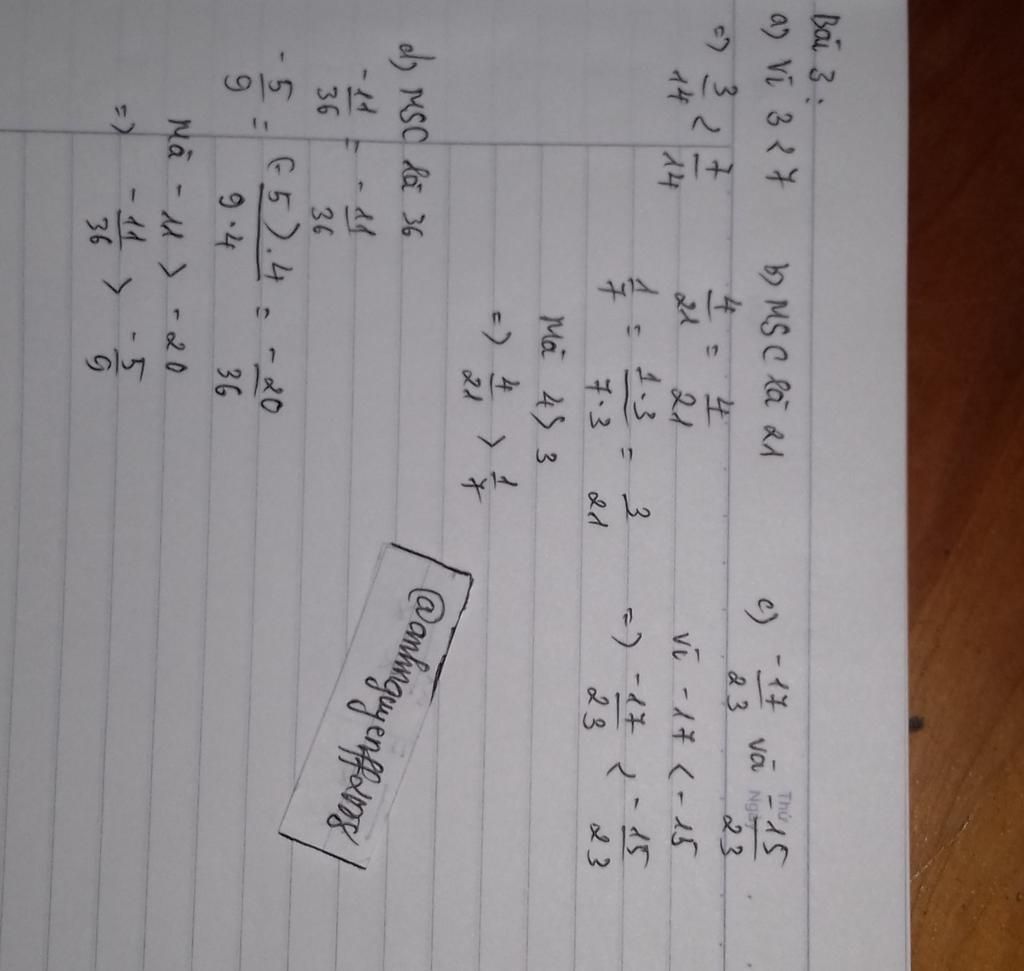 Bài 3:
a) Vì 3 < 7
=) 3/14 < 7/14
b) MSC là 21
4/21 = 4/21
1/7 = 1.3/7.3 = 3/21
Mà 4 > 3
=) 4/21 > 1/7
c) -17/23 và -15/23
Vì -17 < -15
=) -17/23 < -15/23
d) MSC là 36
-11/36 = -11/36
-5/9 = (-5).4/9.4 = -20/36
Mà -11 > -20
=) -11/36 > -5/9
Thứ
Ngày